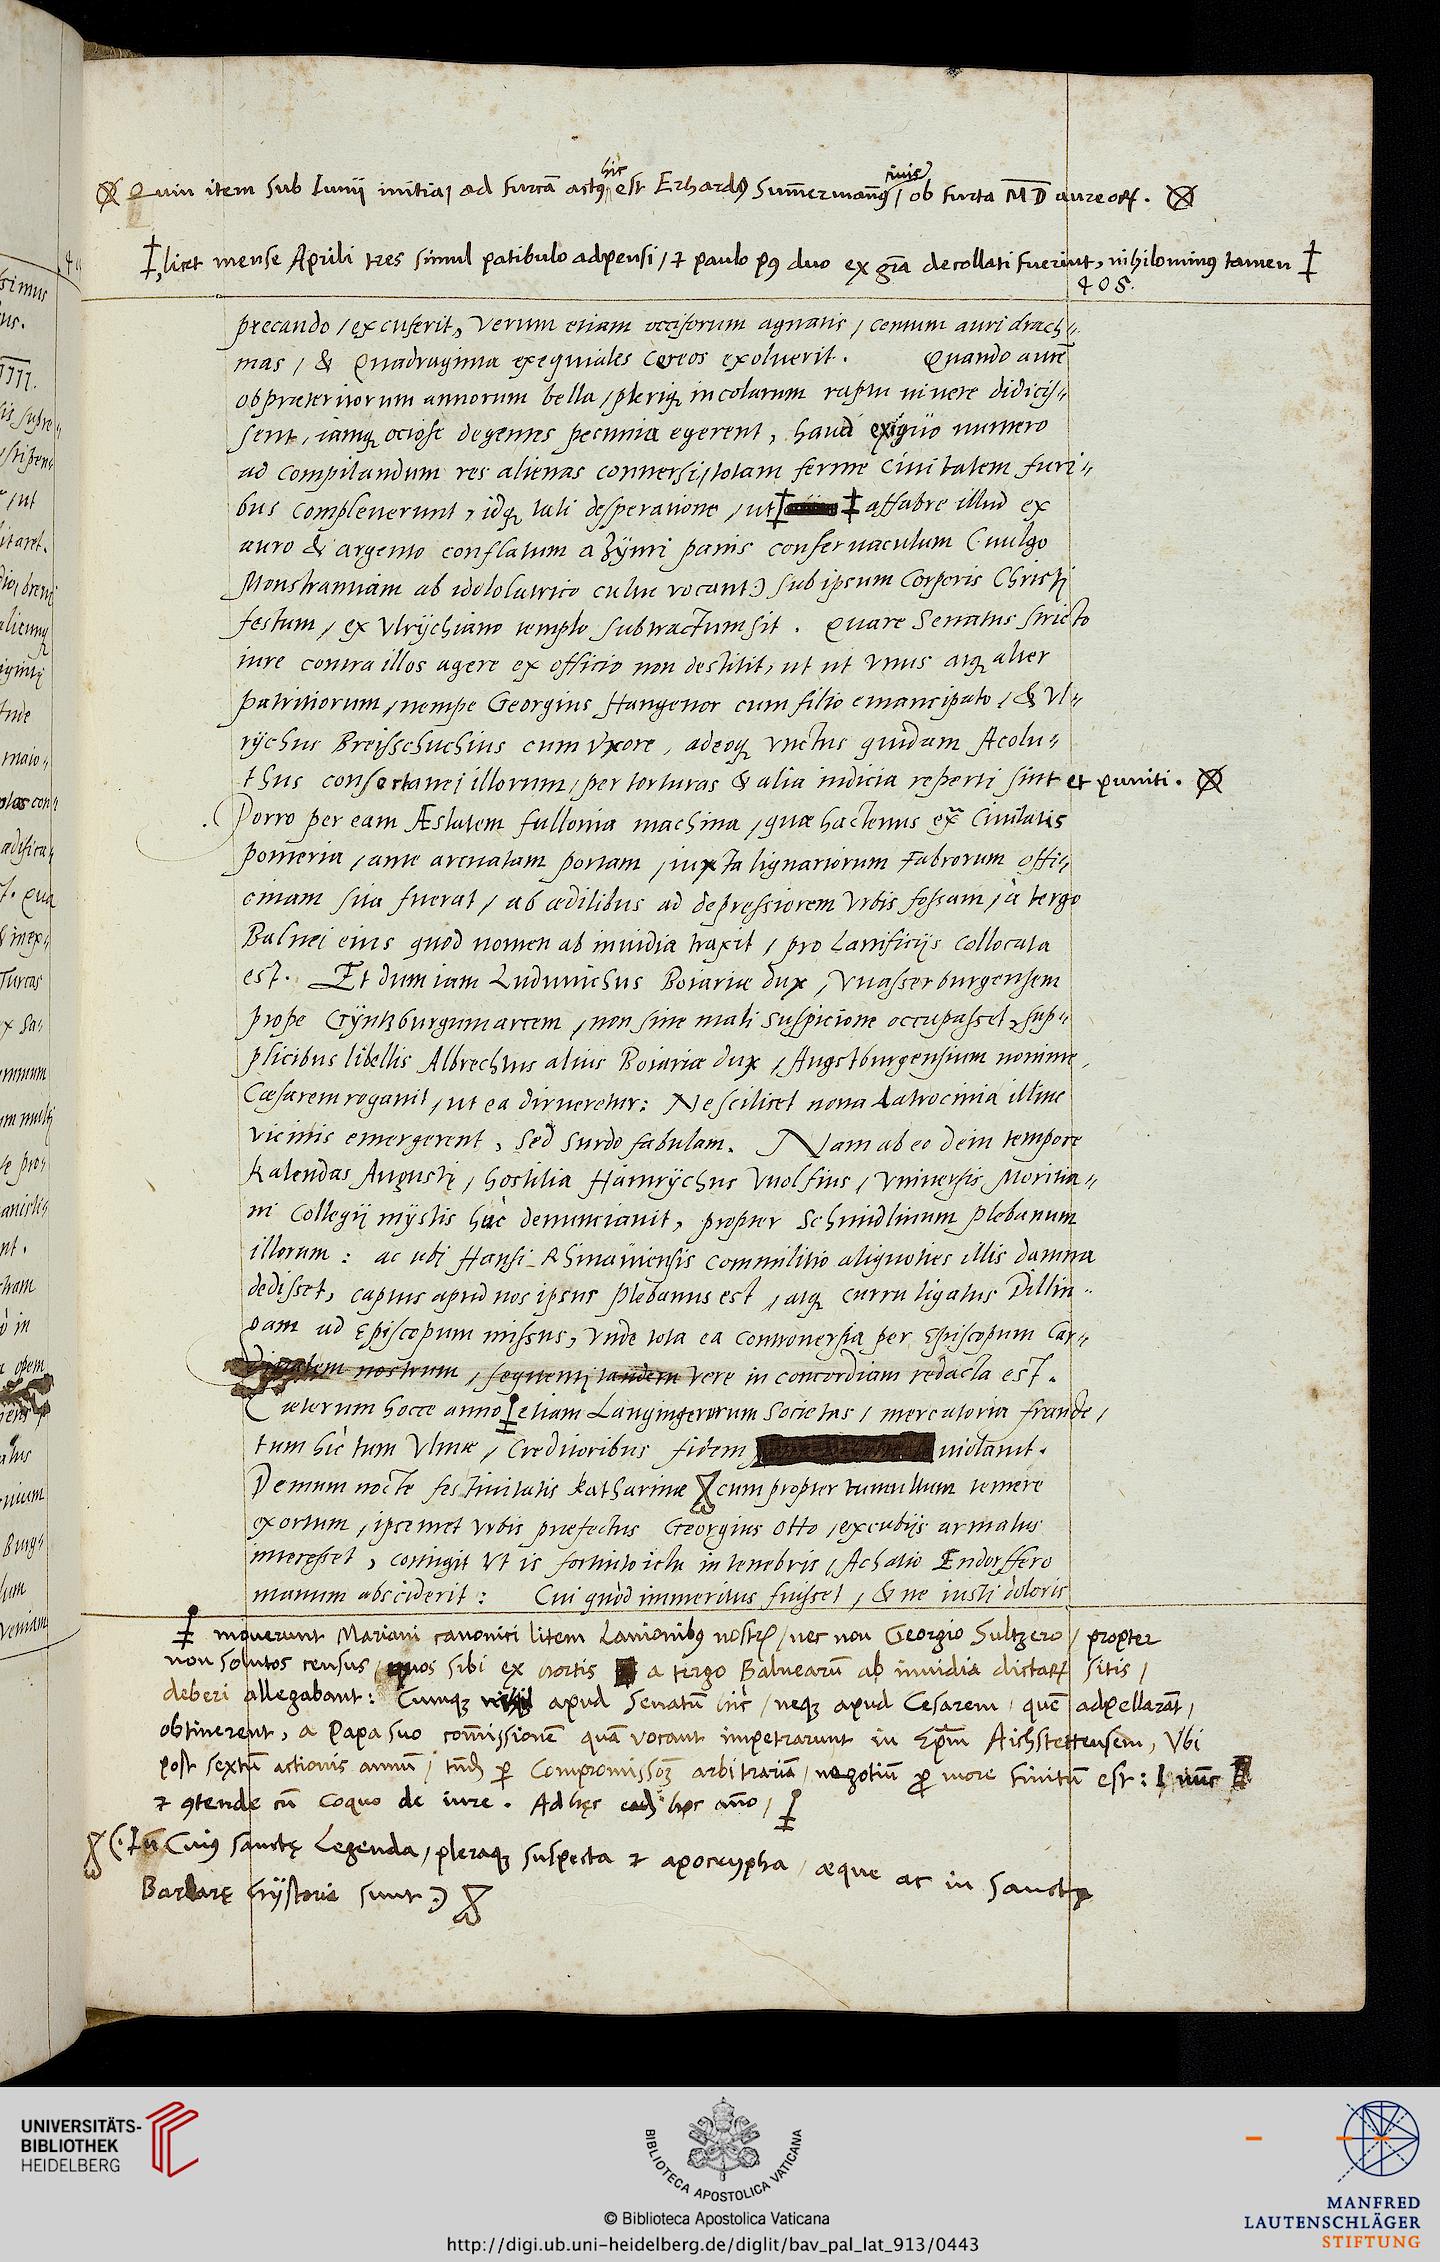 Quin item sub Iunij initia, ad furcā actꝯ hic est Erhardꝯ Sum̄ermanꝯ, ciuis ob furta M̄D̄ aureoꝝ.
‡ licet mense Aprili tres simul patibulo adpensi, & paulo pꝯ duo ex gr̄a decollati fuerint, nihilominꝯ tamen ‡
405.
precando, excuserit, verum etiam occisorum agnatis, centum auri drach-
mas, & Quadraginta exequiales Cereos exoluerit. Quando autē
ob præteritorum annorum bella, pleriqꝫ incolarum raptu viuere didicis-
sent, iamqꝫ ociose degentes pecunia egerent, haud exiguo numero
ad compilandum res alienas conuersi, totam ferme Ciuitatem furi-
bus compleuerunt, idqꝫ tali desperatione, ut ‡ ‡ affabre illud ex
auro & argento conflatum azÿmi panis conseruaculum (vulgo
Monstrantiam ab idololatrico cultu vocant) sub ipsum Corporis Christi
festum, ex Vlrÿchiano templo subtractum sit. Quare Senatus stricto
iure contra illos agere ex officio non destitit, ut ut vnus atqꝫ alter
patritiorum, nempe Georgius Hangenor cum filio emancipato, & Vl-
rÿchus Breisschuchius cum vxore, adeoqꝫ vnctus quidam Acolu-
thus consectanei illorum, per torturas & alia indicia reperti sint et puniti.
Porro per eam Æstatem fullonia machina, quæ hactenus ex̄ Ciuitatis
pomeria, ante arcuatam portam, iuxta lignariorum Fabrorum offi-
cinam sita fuerat, ab ædilibus ad depressiorem Vrbis fossam, à tergo
Balnei eius quod nomen ab inuidia traxit, pro Lanificijs collocata
est. Et dum iam Luduuichus Boiariæ dux, Vuasserburgensem
prope Gÿntzburgum arcem, non sine mali suspicione occupasset, sup-
plicibus libellis Albrechtus alius Boiariæ dux, Augstburgensium nomine,
Cæsarem rogauit, ut ea dirueretur: Ne scilicet noua Latrocinia illinc
vicinis emergerent, sed surdo fabulam. Nam ab eo dein tempore
Kalendas Augusti, hostilia Hainrÿchus Vuolfius, Vniuersis Moritia-
ni Collegij mÿstis huc denunciauit, propter Schmidlinum Plebanum
illorum: ac ubi Hansi Rhinauiensis commilitio aliquoties illis damna
dedisset, captus apud nos ipsus Plebanus est, atqꝫ curru ligatus Dillin-
gam ad Episcopum missus, vnde tota ea controuersia per Episcopum Car-
dinalem nostrum, sequenti tandem Vere in concordiam redacta est.
Cæterum hocce anno ‡ etiam Laugingerorum Societas, mercatoria fraude,
tum hîc tum Vlmæ, Creditoribus fidem violauit.
Demum nocte festiuitatis Katharinæ cum propter tumultum temere
exortum, ipsemet Vrbis præfectus Georgius Otto, excubijs armatus
interesset, contigit vt is fortuito ictu in tenebris, Achatio Endorffero
manum absciderit: Cui quòd immeritus fuisset, & ne iusti doloris
‡ mouerunt Mariani canonici litem Lanionibꝯ nostrꝭ, nec non Georgio Sultzero, propter
non solutos census, quos sibi ex hortis a tergo Balnearū ab inuidia dictaꝝ sitis,
deberi allegabant: Cumqꝫ apud Senatū hîc, neqꝫ apud Cesarem, quē adpellarāt,
obtinerent, a Papa suo com̄issionē quā vocant impetrarunt in Ep̄m Aichstettensem, Vbi
post sextū actionis annū, ꝑ Compromissoꝫ arbitrariā, negotiū ꝓ more finitū est: I nūc
& ꝯtende cū Coquo de iure. Ad hęc hoc an̄o, ‡
(Cuiꝯ sanctę Legenda, pleraqꝫ suspecta & apocrypha, æque ac in Sancte
Barbarę hÿstoria sunt)
UNIVERSITÄTS-
BIBLIOTHEK
HEIDELBERG
BIBLIOTECA APOSTOLICA VATICANA
© Biblioteca Apostolica Vaticana
http://digi.ub.uni-heidelberg.de/diglit/bav_pal_lat_913/0443
MANFRED
LAUTENSCHLÄGER
STIFTUNG